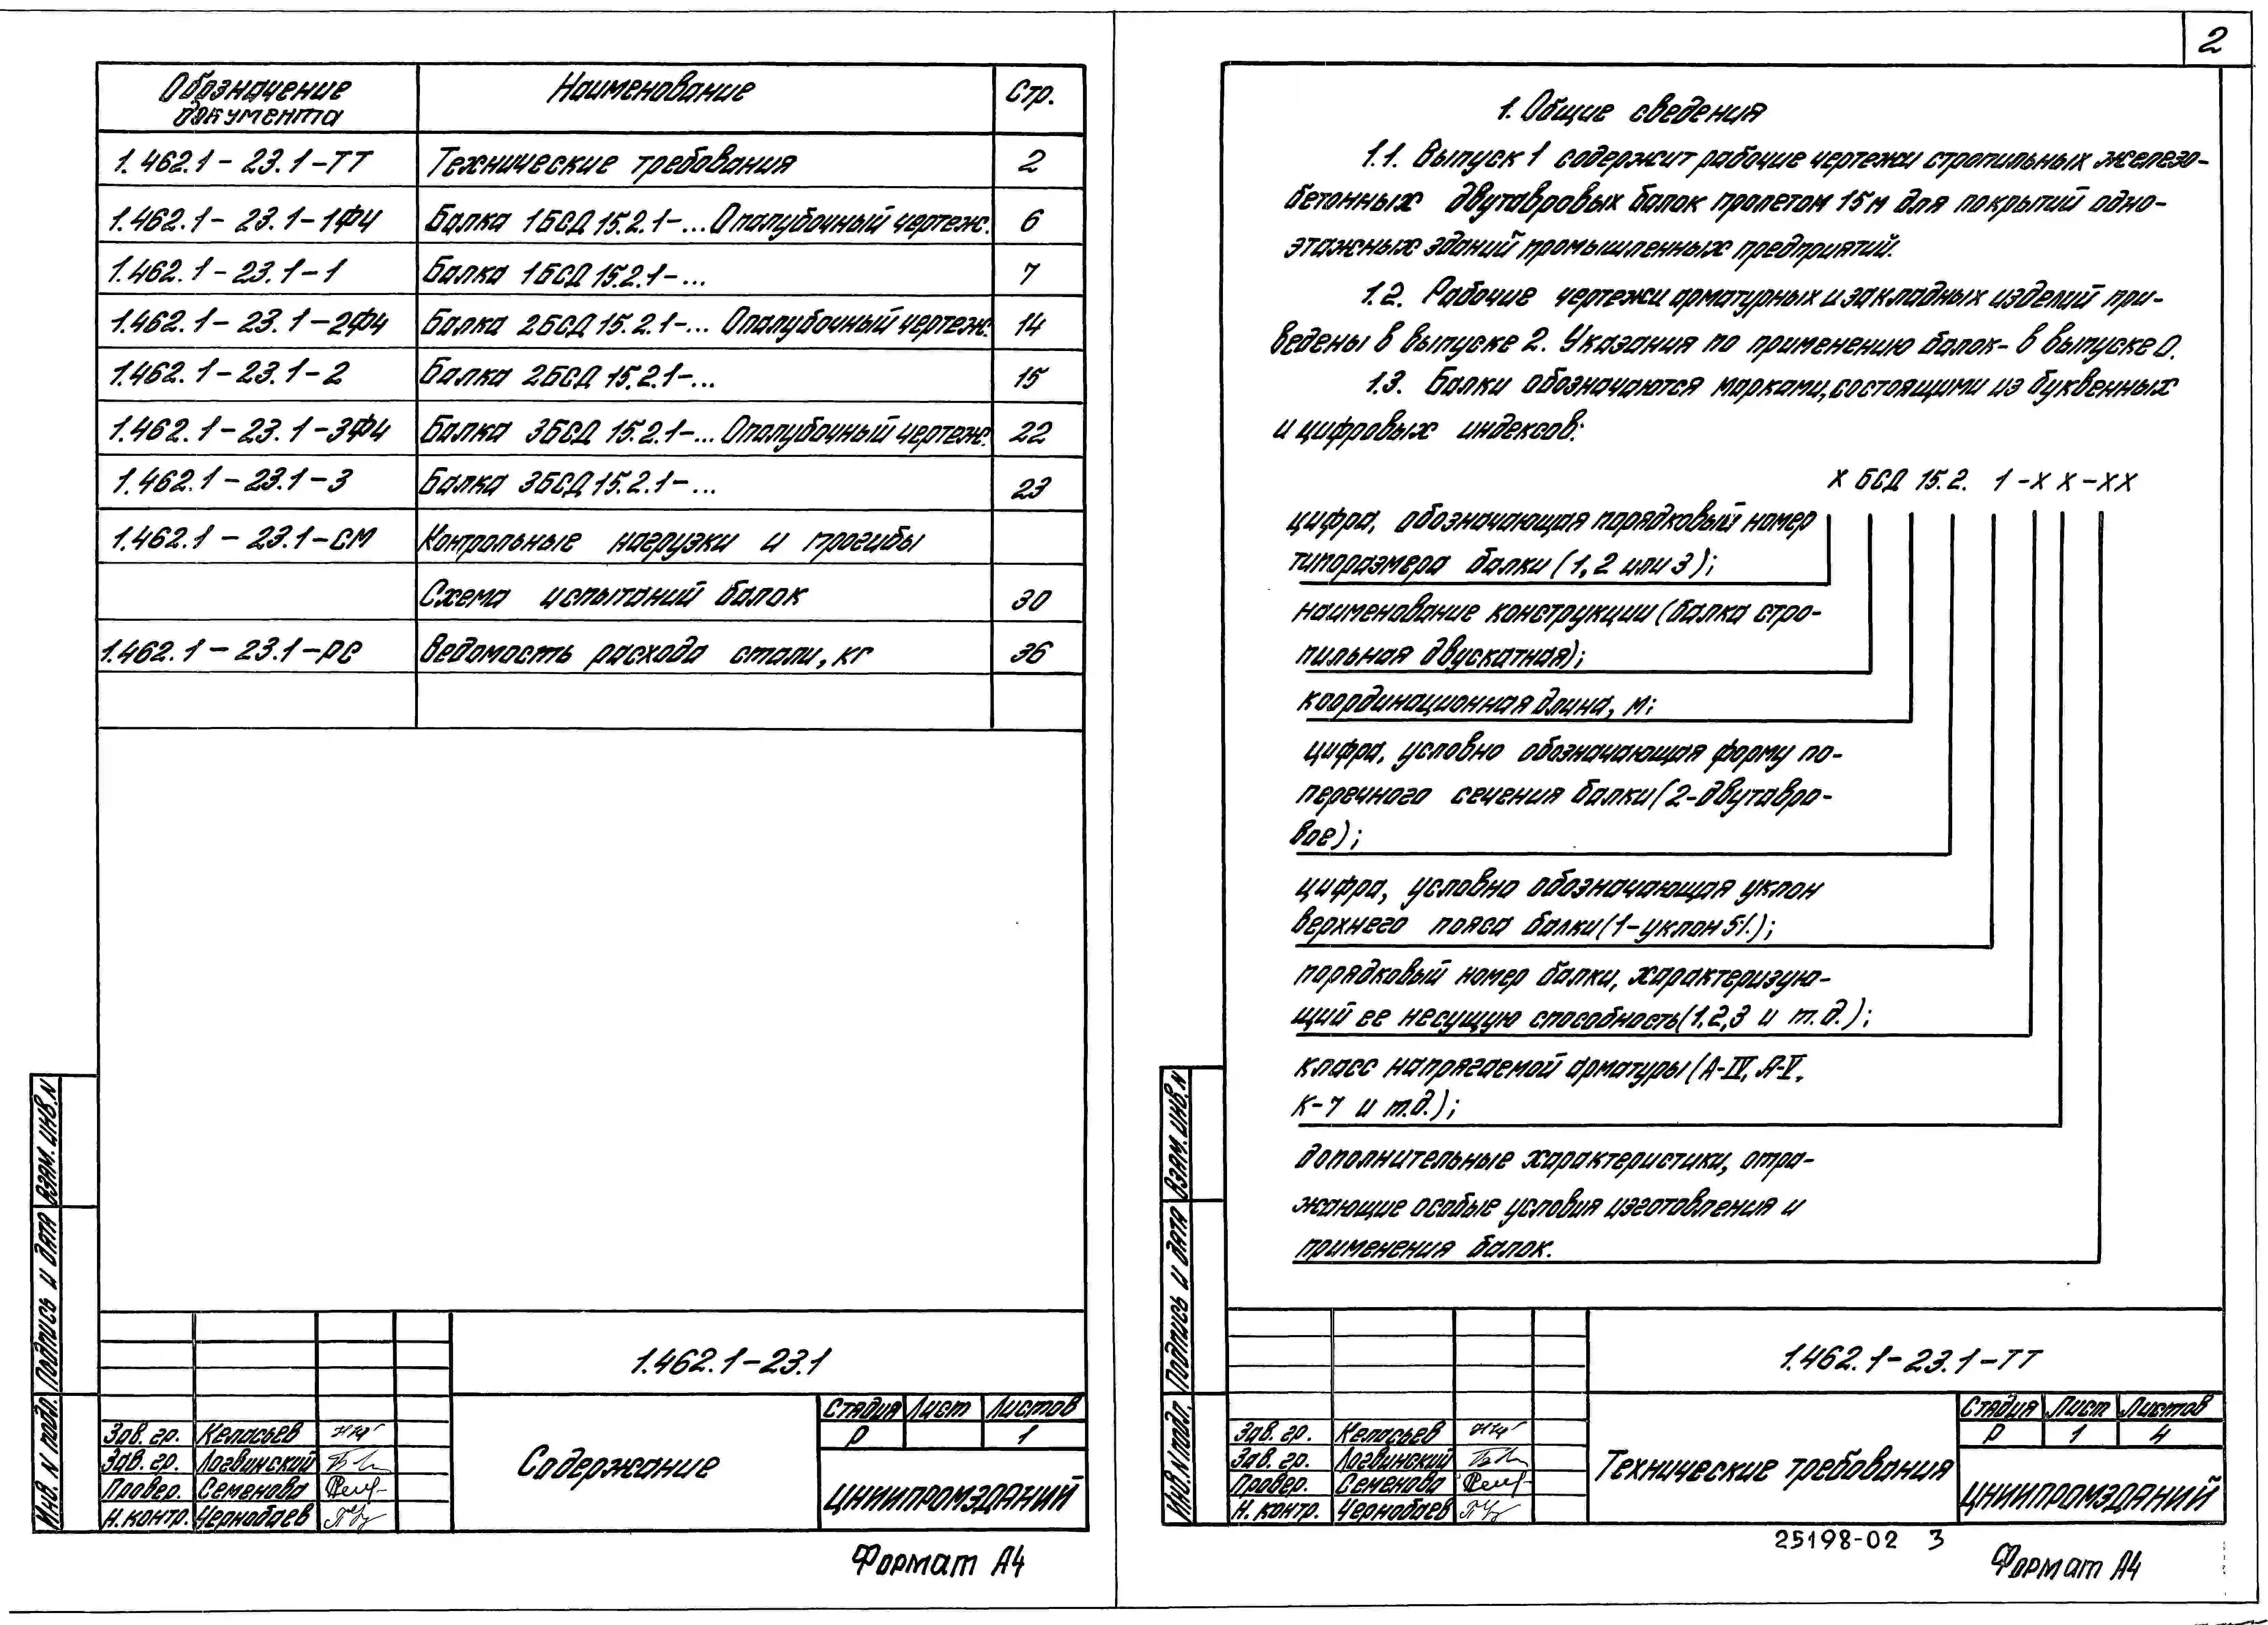 Обозначение документа Наименование Стр.
1.462.1-23.1-ТТ Технические требования 2
1.462.1-23.1-1ФЧ Балка 1БСД 15.2.1-... Опалубочный чертеж. 6
1.462.1-23.1-1 Балка 1БСД 15.2.1-... 7
1.462.1-23.1-2ФЧ Балка 2БСД 15.2.1-... Опалубочный чертеж. 14
1.462.1-23.1-2 Балка 2БСД 15.2.1-... 15
1.462.1-23.1-3ФЧ Балка 3БСД 15.2.1-... Опалубочный чертеж. 22
1.462.1-23.1-3 Балка 3БСД 15.2.1-... 23
1.462.1-23.1-СМ Контрольные нагрузки и прогибы
Схема испытаний балок 30
1.462.1-23.1-РС Ведомость расхода стали, кг 36
Взам. инв. N
Подпись и дата
Инв. N подл.
1.462.1-23.1
Стадия Лист Листов
Р 1
Зав. гр. Келасьев
Зав. гр. Логвинский
Провер. Семенова
Н. контр. Чернобаев
Содержание
ЦНИИПРОМЗДАНИЙ
Формат А4
2
1. Общие сведения
1.1. Выпуск 1 содержит рабочие чертежи стропильных железо-
бетонных двутавровых балок пролетом 15м для покрытий одно-
этажных зданий промышленных предприятий.
1.2. Рабочие чертежи арматурных и закладных изделий при-
ведены в выпуске 2. Указания по применению балок- в выпуске 0.
1.3. Балки обозначаются марками, состоящими из буквенных
и цифровых индексов:
Х БСД 15.2. 1 -Х Х -ХХ
цифра, обозначающая порядковый номер
типоразмера балки (1, 2 или 3);
наименование конструкции (балка стро-
пильная двускатная);
координационная длина, м;
цифра, условно обозначающая форму по-
перечного сечения балки (2-двутавро-
вое);
цифра, условно обозначающая уклон
верхнего пояса балки (1-уклон 5%);
порядковый номер балки, характеризую-
щий ее несущую способность (1,2,3 и т.д.);
класс напрягаемой арматуры (А-IV, А-V,
К-7 и т.д.);
дополнительные характеристики, отра-
жающие особые условия изготовления и
применения балок.
Взам. инв. N
Подпись и дата
Инв. N подл.
1.462.1-23.1-ТТ
Стадия Лист Листов
Р 1 4
Зав. гр. Келасьев
Зав. гр. Логвинский
Провер. Семенова
Н. контр. Чернобаев
Технические требования
ЦНИИПРОМЗДАНИЙ
25198-02 3
Формат А4